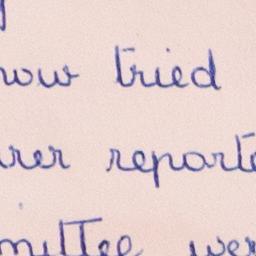 now tried
urer reporte
mittee wer